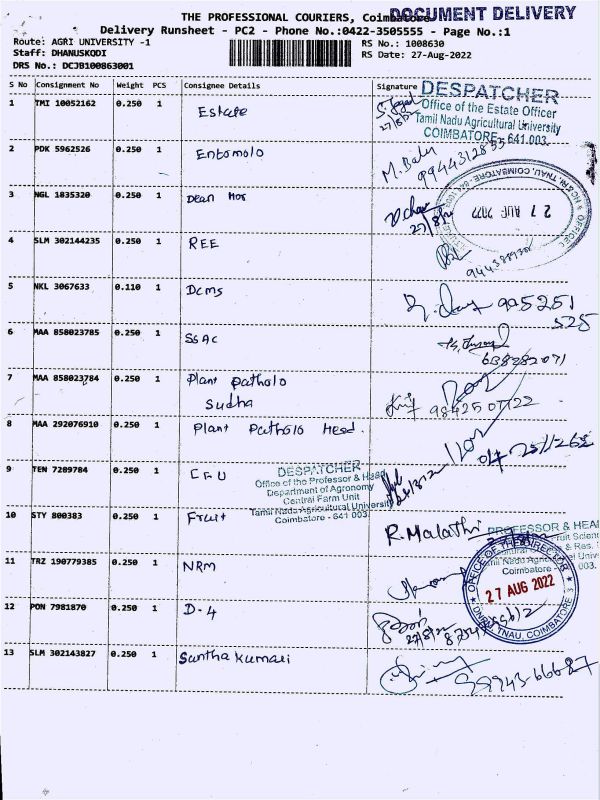 THE PROFESSIONAL COURIERS, Coimbatore
DOCUMENT DELIVERY
Delivery Runsheet - PC2 - Phone No.:0422-3505555 - Page No.:1
Route: AGRI UNIVERSITY -1
RS No.: 1008630
Staff: DHANUSKODI
RS Date: 27-Aug-2022
DRS No.: DCJB100863001
S No Consignment No Weight PCS Consignee Details Signature
1 TMI 10052162 0.250 1 Estate
27/8/22
DESPATCHER
Office of the Estate Officer
Tamil Nadu Agricultural University
COIMBATORE - 641 003.
2 PDK 5962526 0.250 1 Entomolo
M. Balu
9944312855
3 NGL 1835320 0.250 1 Dean Hor
27/8/22
27 AUG 2022
HC&RI, TNAU, COIMBATORE
4 SLM 302144235 0.250 1 REE
5 NKL 3067633 0.110 1 Dcms
995251
525
6 MAA 858023785 0.250 1 SSAC
638282071
7 MAA 858023784 0.250 1 Plant patholo
Sudha
9842507722
8 MAA 292076910 0.250 1 Plant Patholo Head.
9 TEN 7289784 0.250 1 CFU
DESPATCHER
Office of the Professor & Head
Department of Agronomy
Central Farm Unit
Tamil Nadu Agricultural University
Coimbatore - 641 003.
10 STY 800383 0.250 1 Fruit
R. Malathi
PROFESSOR & HEAD
Fruit Science
& Res.
Tamil Nadu Agricultural University
Coimbatore - 003.
11 TRZ 190779385 0.250 1 NRM
OFFICE OF THE DIRECTOR
27 AUG 2022
DNRM, TNAU, COIMBATORE 3
12 PON 7981870 0.250 1 D-4
27/8/22
13 SLM 302143827 0.250 1 Santha kumari
99943-66687